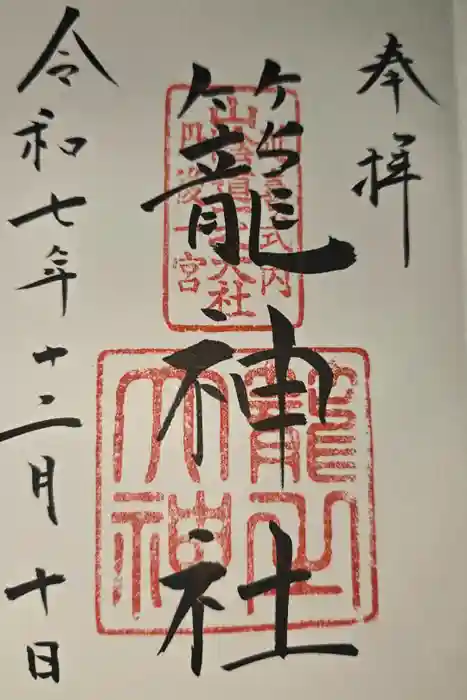 奉拝
籠神社
令和七年十二月十日
式内
山陰道大社
丹後一宮
籠之
大神